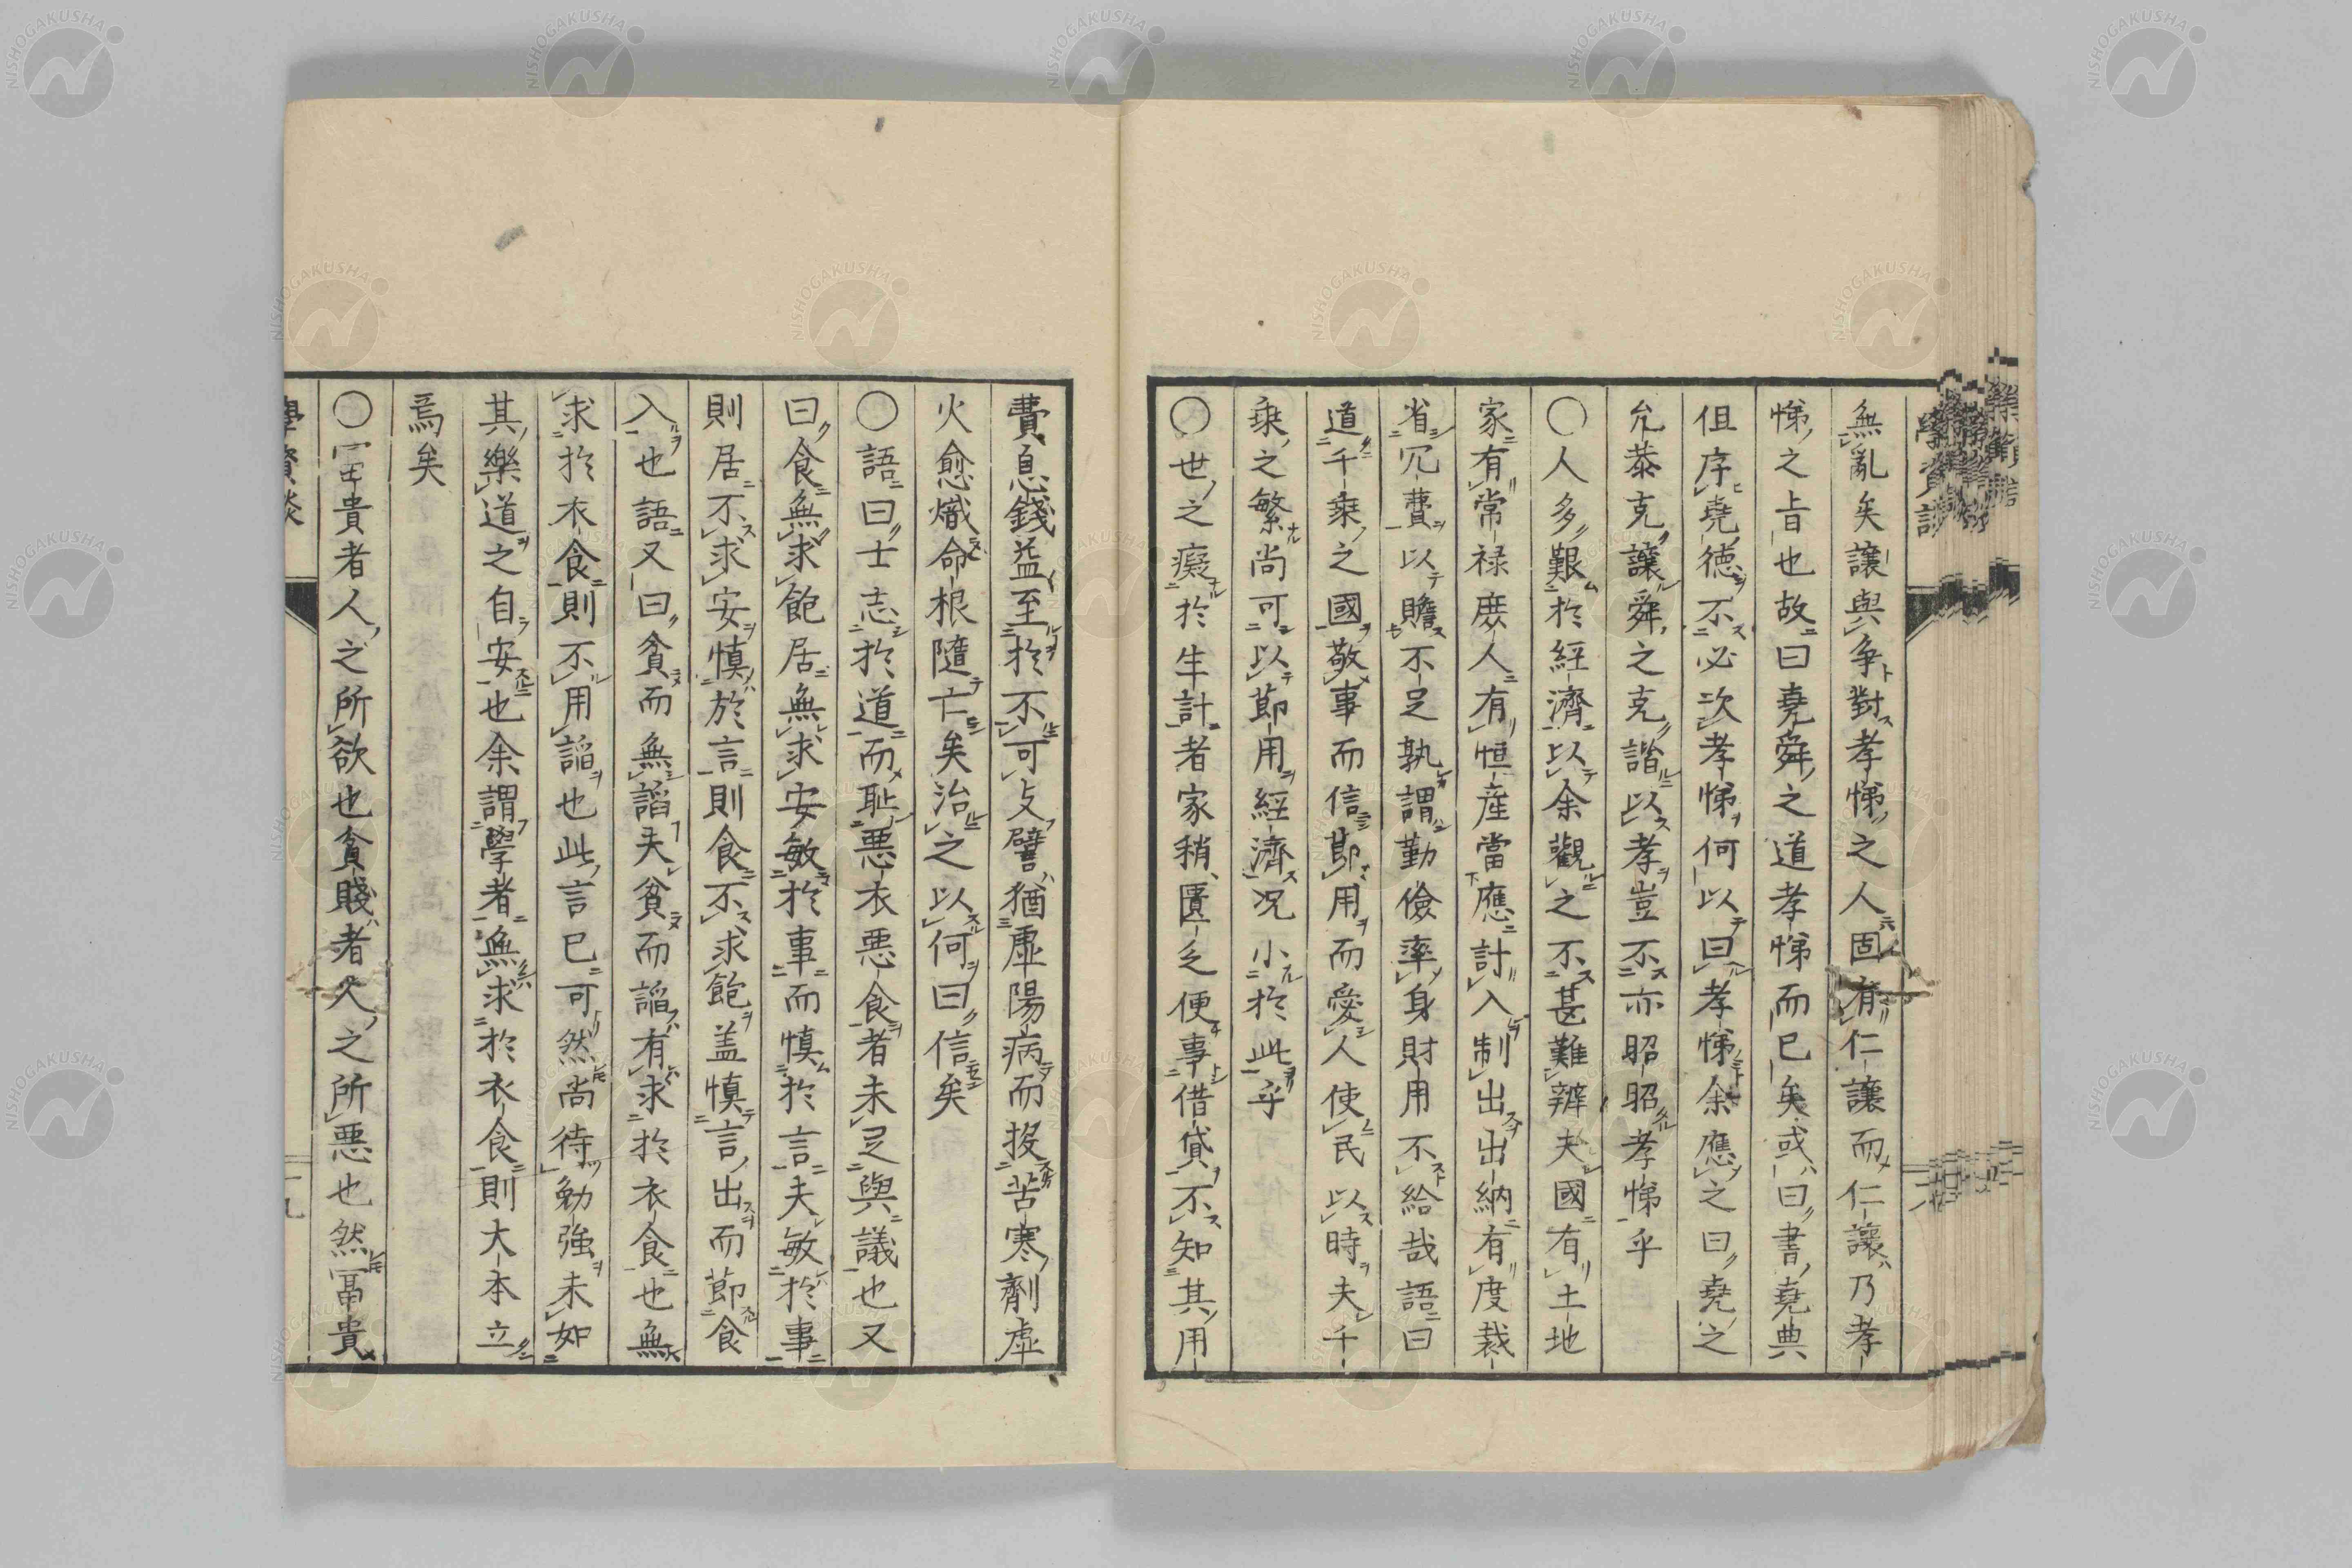 無亂矣讓與爭對孝悌之人固有仁讓而仁讓乃孝
悌之旨也故曰堯舜之道孝悌而已矣或曰書堯典
但序堯德不必次孝悌何以曰孝悌余應之曰堯之
允恭克讓舜之克諧以孝豈不亦昭昭孝悌乎
〇人多艱於經濟以余觀之不甚難辨夫國有土地
家有常禄庶人有恒産當應計入制出出納有度裁
省冗費以贍不足孰謂勤儉率身財用不給哉語曰
道千乘之國敬事而信節用而愛人使民以時夫千
乘之繁尚可以節用經濟况小於此乎
〇世之癡於生計者家稍匱乏便事借貸不知其用
費息錢益至於不可支譬猶虛陽病而投苦寒劑虛
火愈熾命根隨亡矣治之以何曰信矣
〇語曰士志於道而恥惡衣惡食者未足與議也又
曰食無求飽居無求安敏於事而慎於言夫敏於事
則居不求安慎於言則食不求飽盖慎言出而節食
入也語又曰貧而無諂夫貧而諂有求於衣食也無
求於衣食則不用諂也此言已可然尚待勉強未如
其樂道之自安也余謂學者無求於衣食則大本立
焉矣
〇富貴者人之所欲也貧賤者人之所惡也然冨貴
學資談
NISHOGAKUSHA